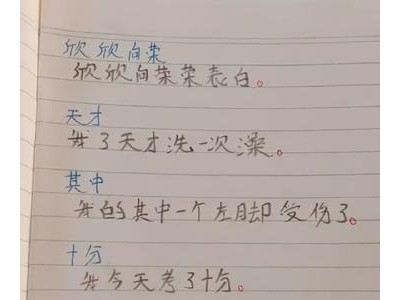 欣欣向荣
欣欣向荣荣表白。
天才
我3天才洗一次澡。
其中
我的其中一个左脚受伤了。
十分
我今天考了十分。